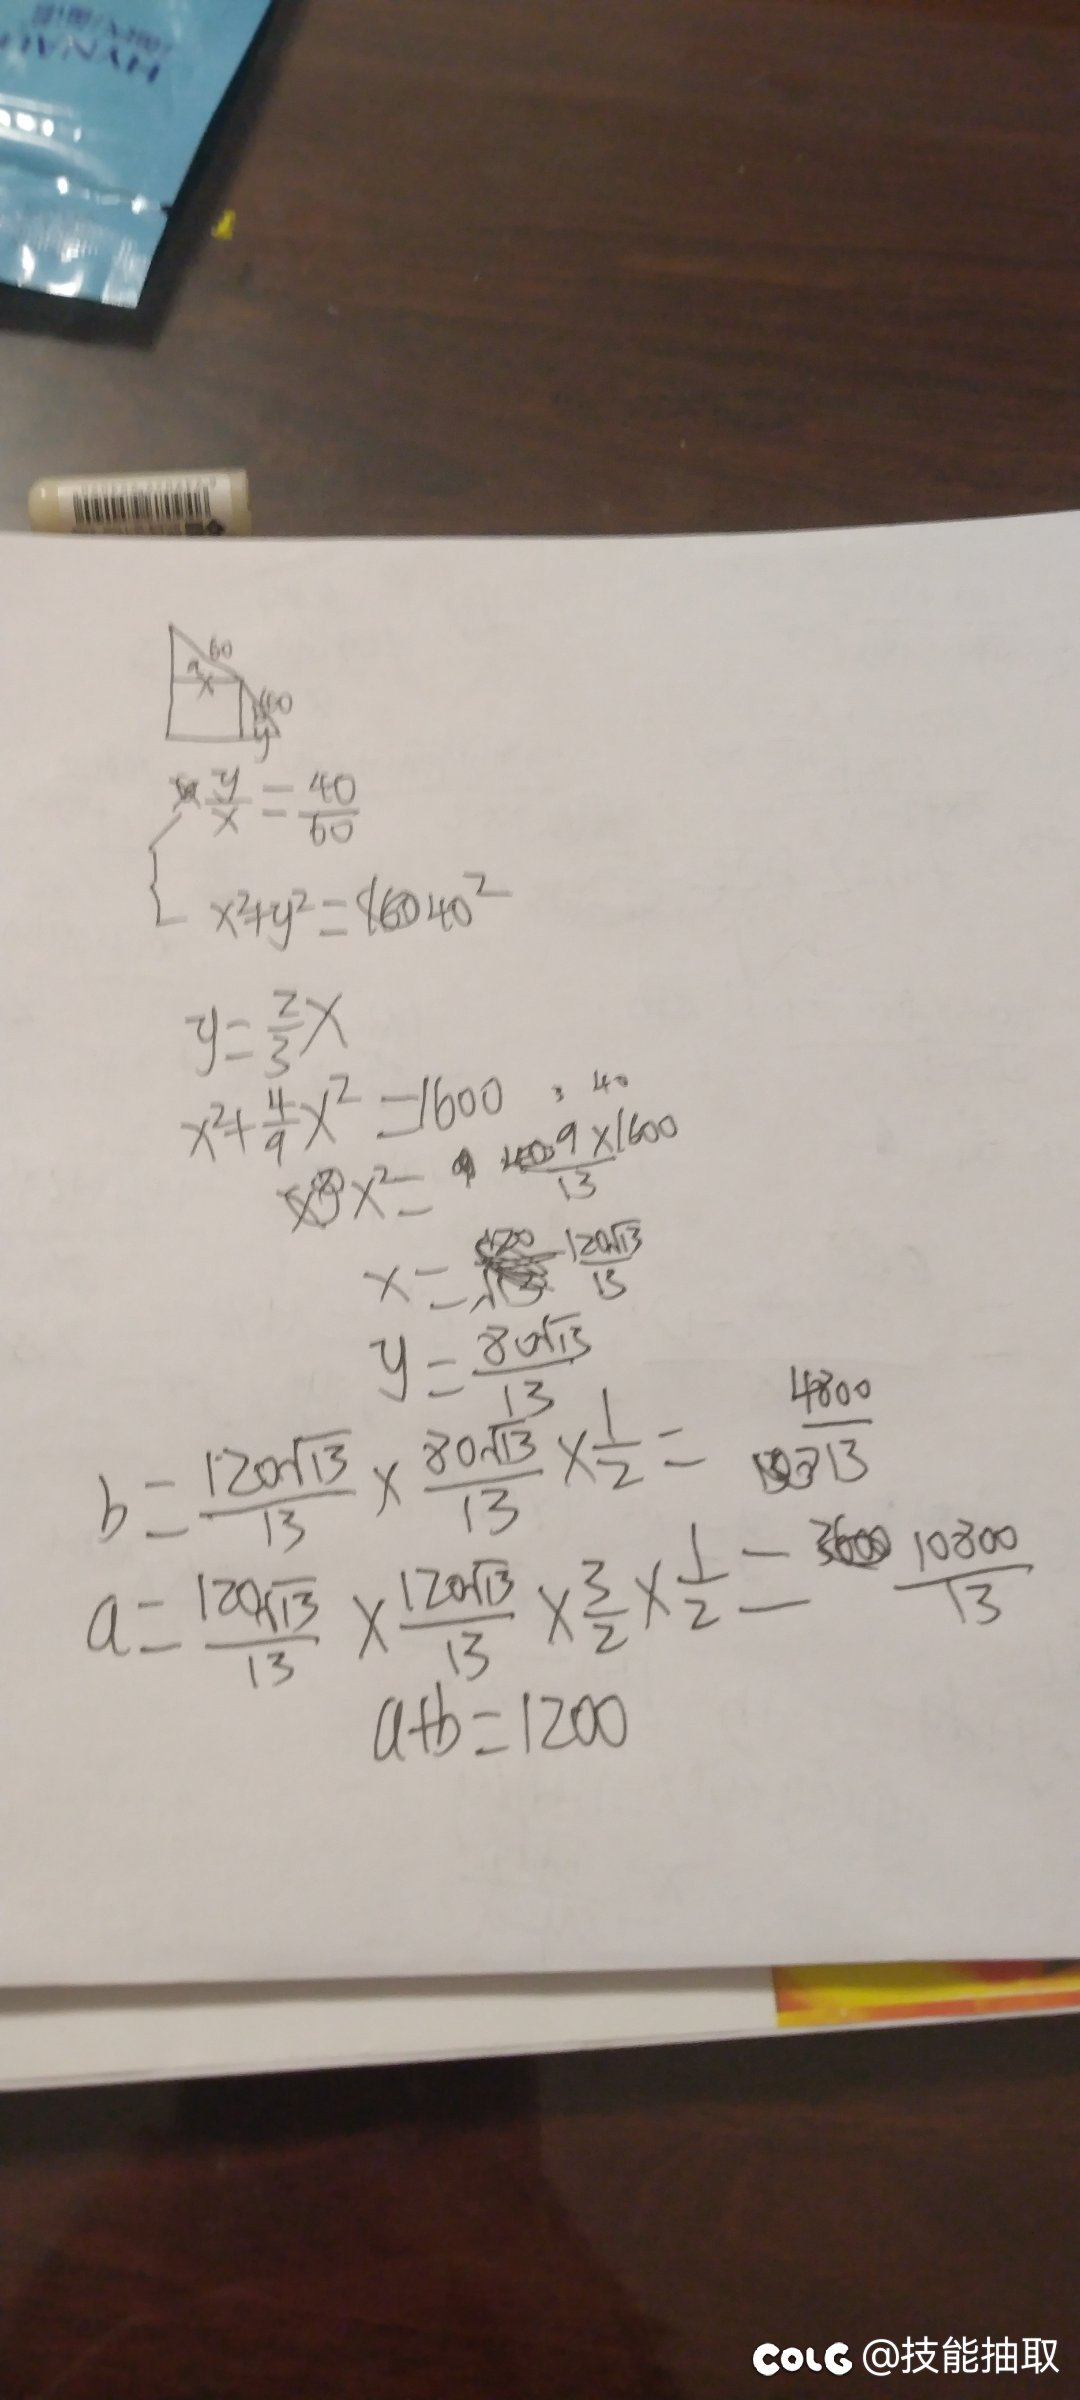 60
a
x
60
y
y/x = 40/60
x²+y²=40²
y=2/3x
x²+4/9x²=1600
40
x²= 9×1600/13
x= 120√13/13
y= 80√13/13
b= 120√13/13 × 80√13/13 × 1/2 = 4800/13
a= 120√13/13 × 120√13/13 × 3/2 × 1/2 = 10800/13
a+b=1200
COLG @技能抽取